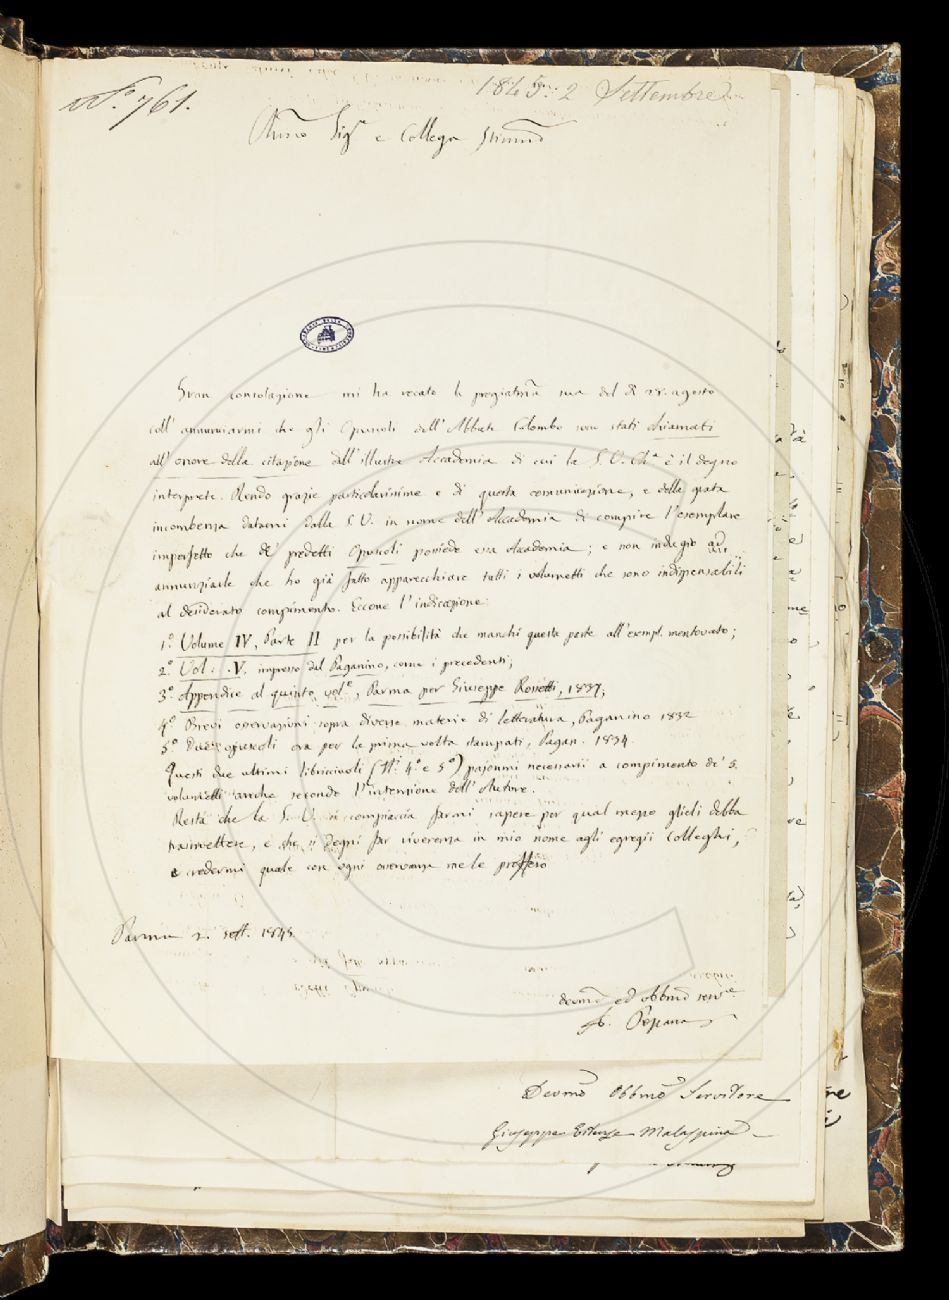 N.° 761.
1845: 2 Settembre
Sig.e e Collega Stim.mo
Gran consolazione mi ha recato la pregiatma sua del dì 28. agosto
coll' annunciarmi che gli Opuscoli dell' Abbate Colombo sono stati chiamati
all' onore della citazione dall' illustre Accademia di cui la S. V. Ch.a è il degno
interprete. Rendo grazie particolarissime e di questa comunicazione, e della grata
incombenza datami dalla S. V. in nome dell' Accademia di compire l'esemplare
imperfetto che de' predetti Opuscoli possiede essa Accademia; e non indugio ad
annunziarle che ho già fatto apparecchiare tutti i volumetti che sono indispensabili
al desiderato compimento. Eccone l'indicazione:
1.° Volume IV, Parte II per la possibilità che manchi questa parte all'esempl. mentovato;
2.° Vol. V. impresso dal Paganino, come i precedenti;
3.° Appendice al quinto vol.e, Parma per Giuseppe Rossetti, 1837;
4.° Brevi osservazioni sopra diverse materie di letteratura, Paganino 1832
5.° Due opuscoli ora per la prima volta stampati, Pagan. 1834.
Questi due ultimi libricciuoli (N.i 4.° e 5.°) pajonmi necessarii a compimento de' 5
volumetti anche secondo l'intenzione dell' Autore.
Resta che la S. V. si compiaccia farmi sapere per qual mezzo glieli debba
trasmettere, e che si degni far riverenza in mio nome agli egregii Colleghi,
e credermi quale con ogni osservanza me le proffero
Parma 2. sett. 1845.
devmo ed obbmo serv.e
A. Pezzana
Devmo Obbmo Servitore
Giuseppe Estense Malaspina